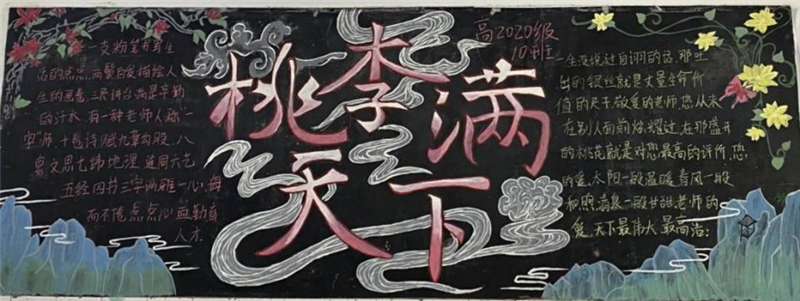 桃李满天下
高2020级
10班
一支粉笔书写生
活的点点,两鬓白发描绘人
生的画卷,三尺讲台满是辛勤
的汗水,有一种老师人称“一
字”师,十卷诗赋九章勾股,八
索文思七纬地理,连同六艺
五经四书三字两雅一心,诲
而不倦点点心血勤育
人才
一生没说过自诩的话,那吐
出的银丝就是丈量生命价
值的尺子,敬爱的老师,您从未
在别人面前炫耀过,在那盛开
的桃花就是对您最高的评价,您
的爱,太阳一般温暖,春风一般
和煦,清泉一般甘甜,老师的
爱,天下最伟大,最高洁;